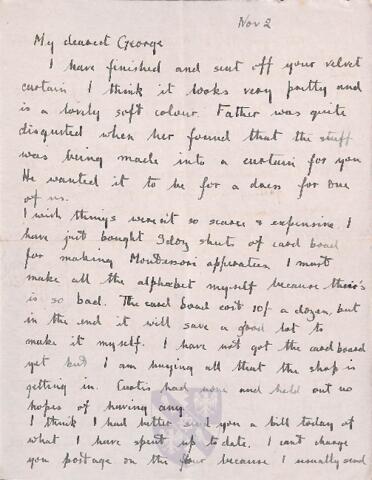 Nov 2
My dearest George
I have finished and sent off your velvet
curtain I think it looks very pretty and
is a lovely soft colour. Father was quite
disgusted when her found that the stuff
was being made into a curtain for you
He wanted it to be for a dress for one
of us.
I wish things weren't so scarce & expensive. I
have just bought 3doz sheets of card board
for making Montessori apparatus I must
make all the alphabet myself because theirs
is so bad. The card board cost 10/- a dozen, but
in the end it will save a good lot to
make it myself. I have not got the cardboard
yet but I am buying all that the shop is
getting in. Curtis had none and held out no
hopes of having any
I think I had better send you a bill today of
what I have spent up to date. I can't charge
you postage on the because I usually send